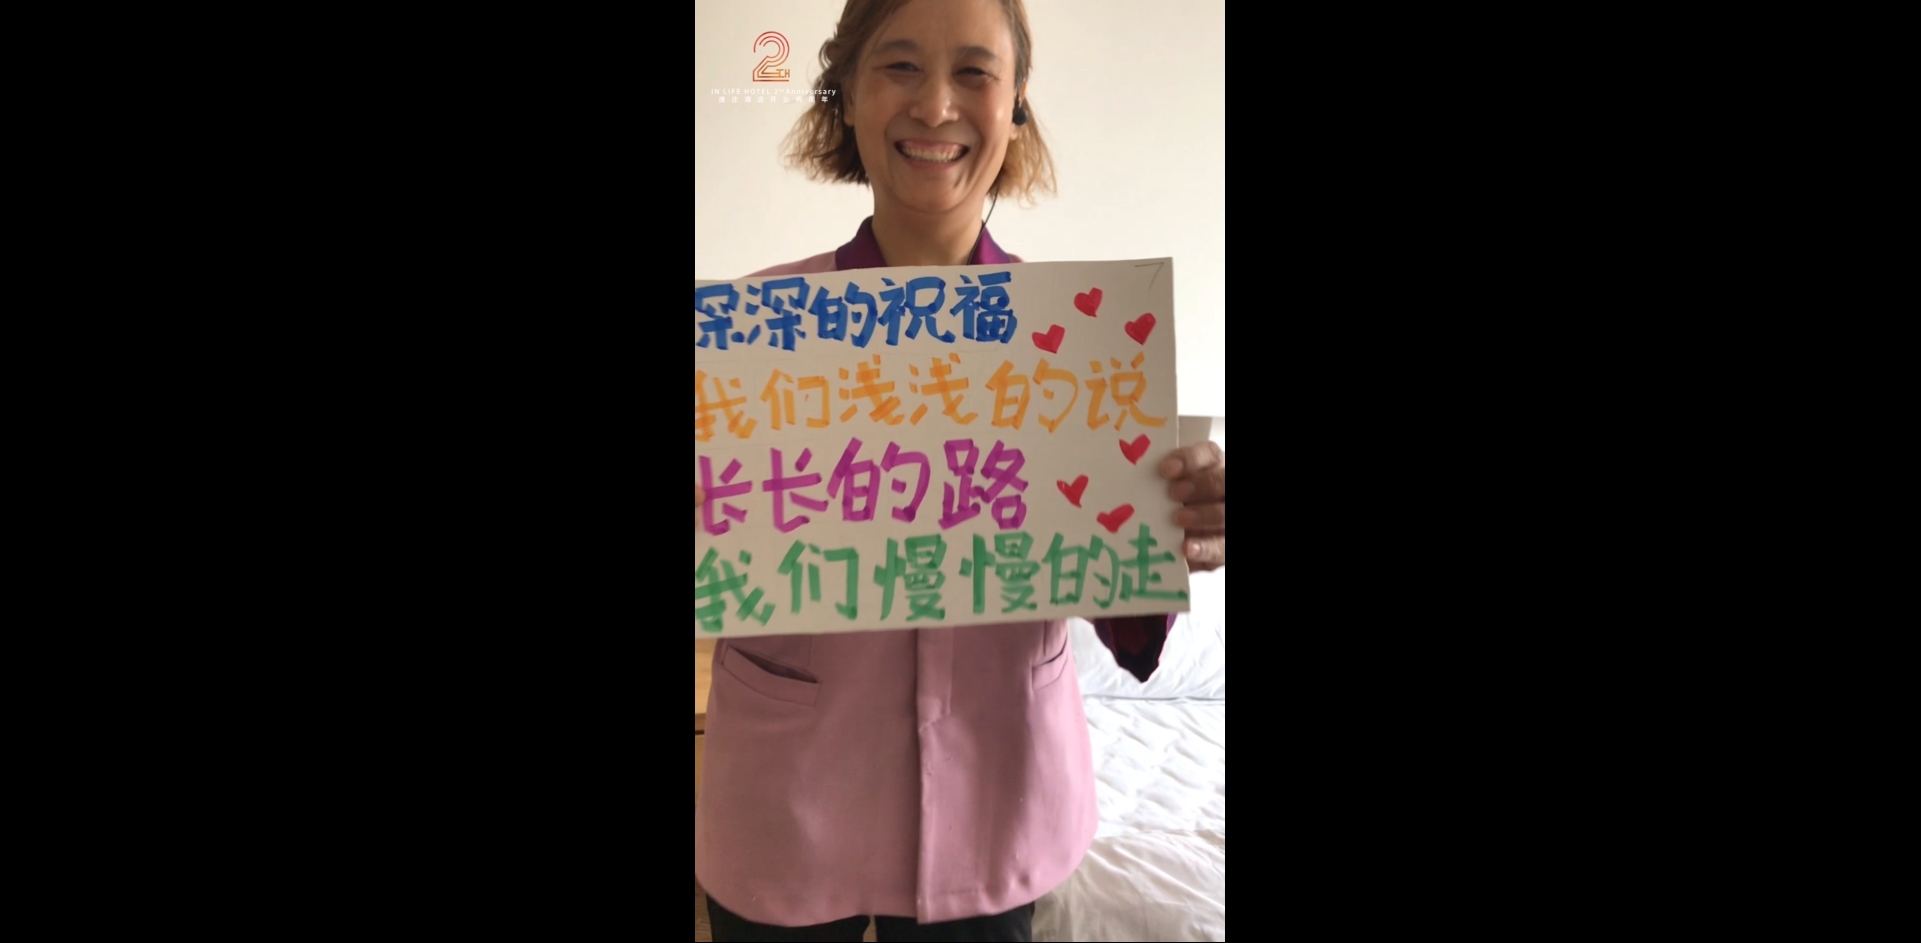 2TH
IN LIFE HOTEL 2ⁿᵈAnniversary
深深的祝福
我们浅浅的说
长长的路
我们慢慢的走